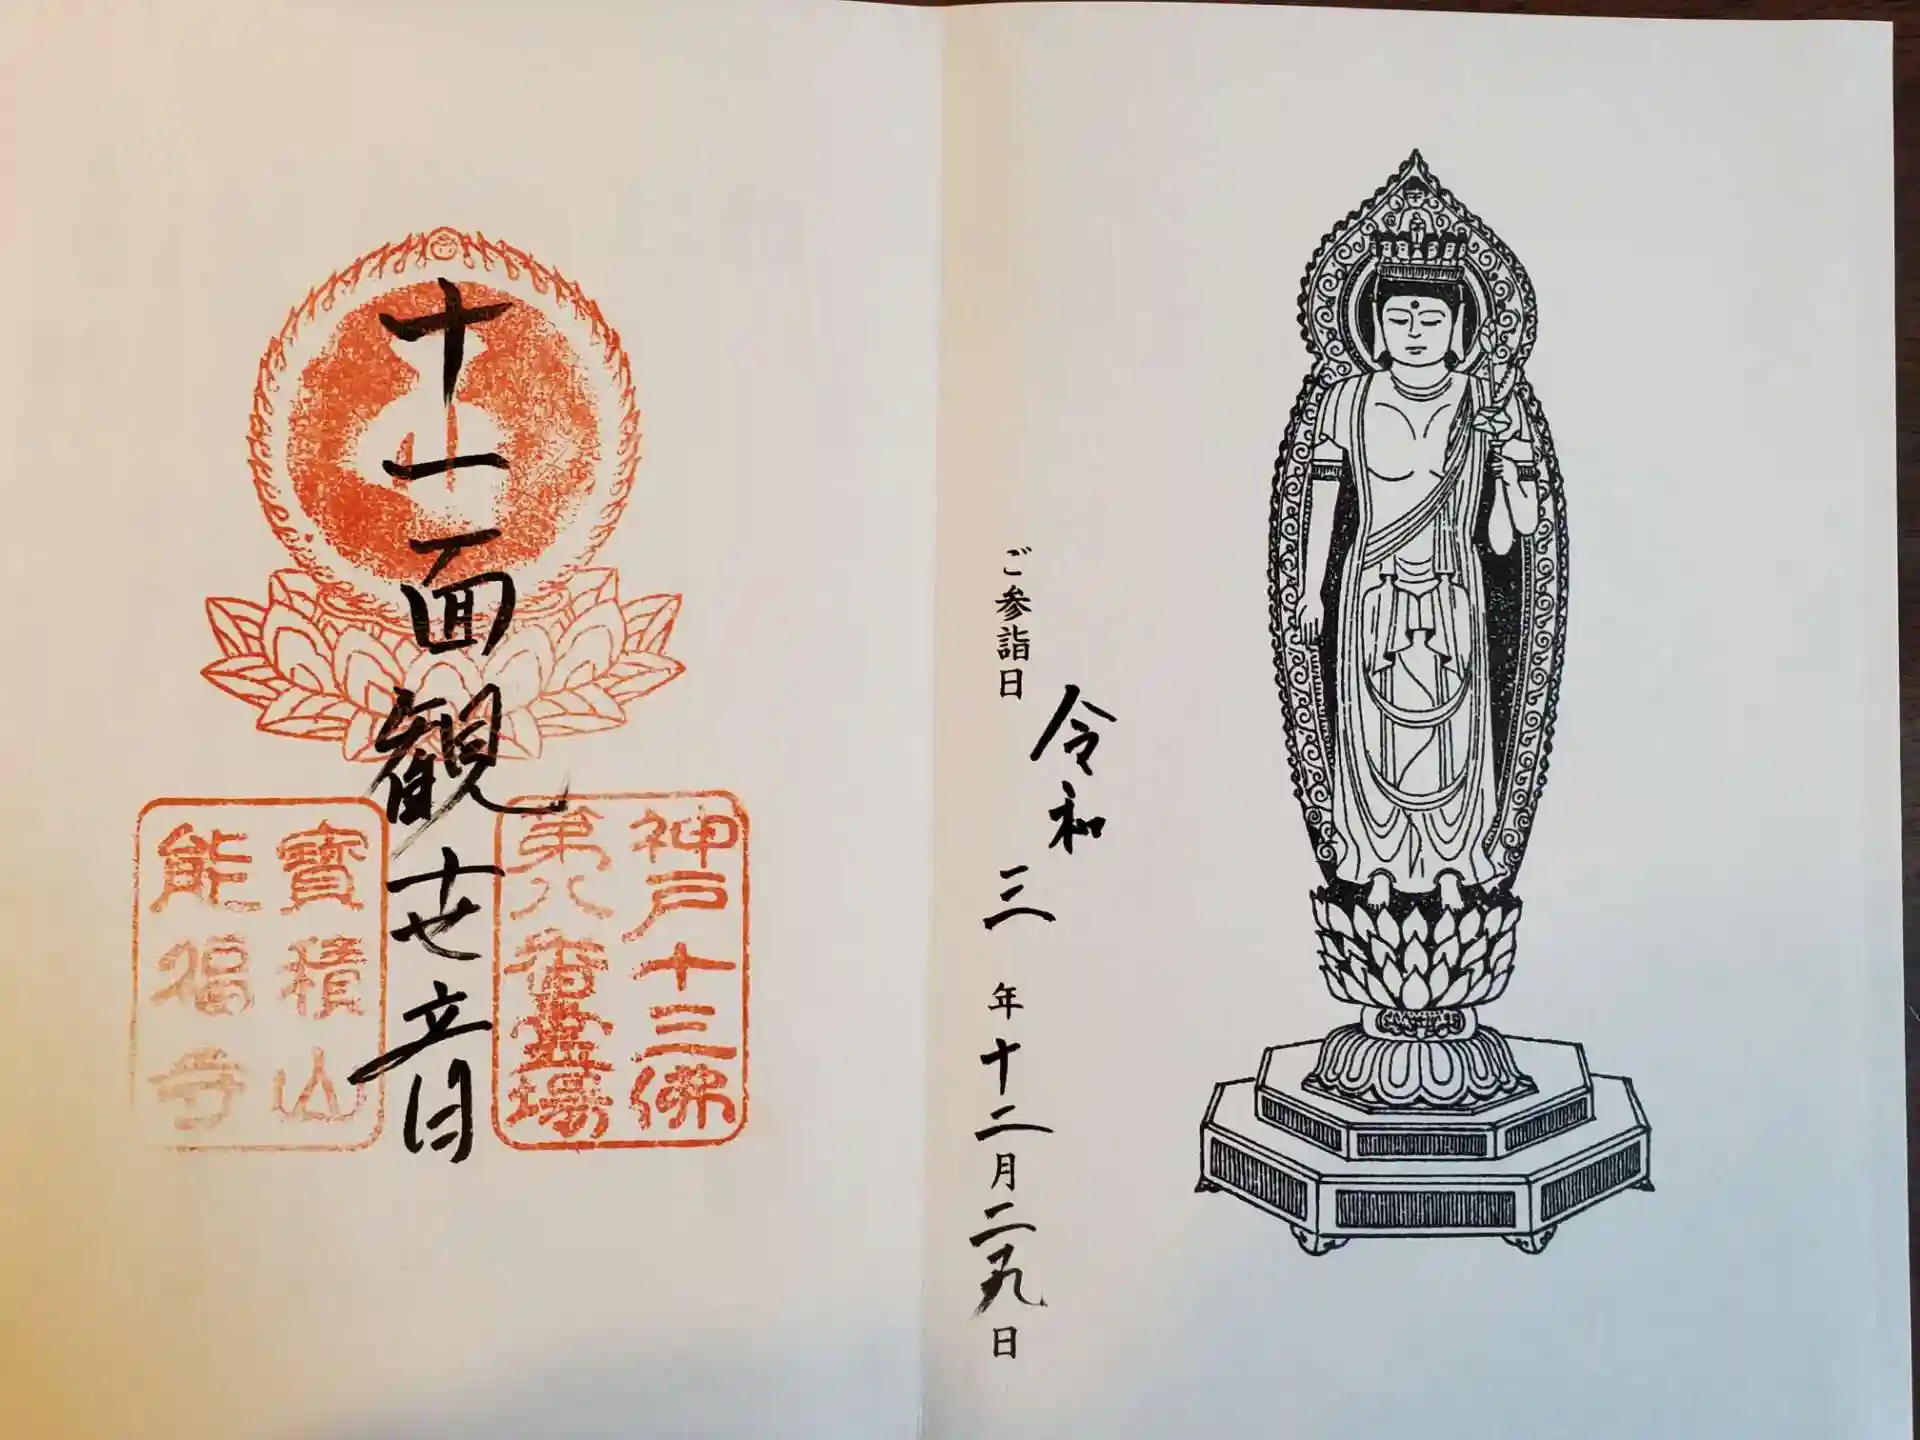 ご参詣日
令和
三年十二月二九日
十一面観世音
神戸十三佛
第八番霊場
寶積山
能福寺